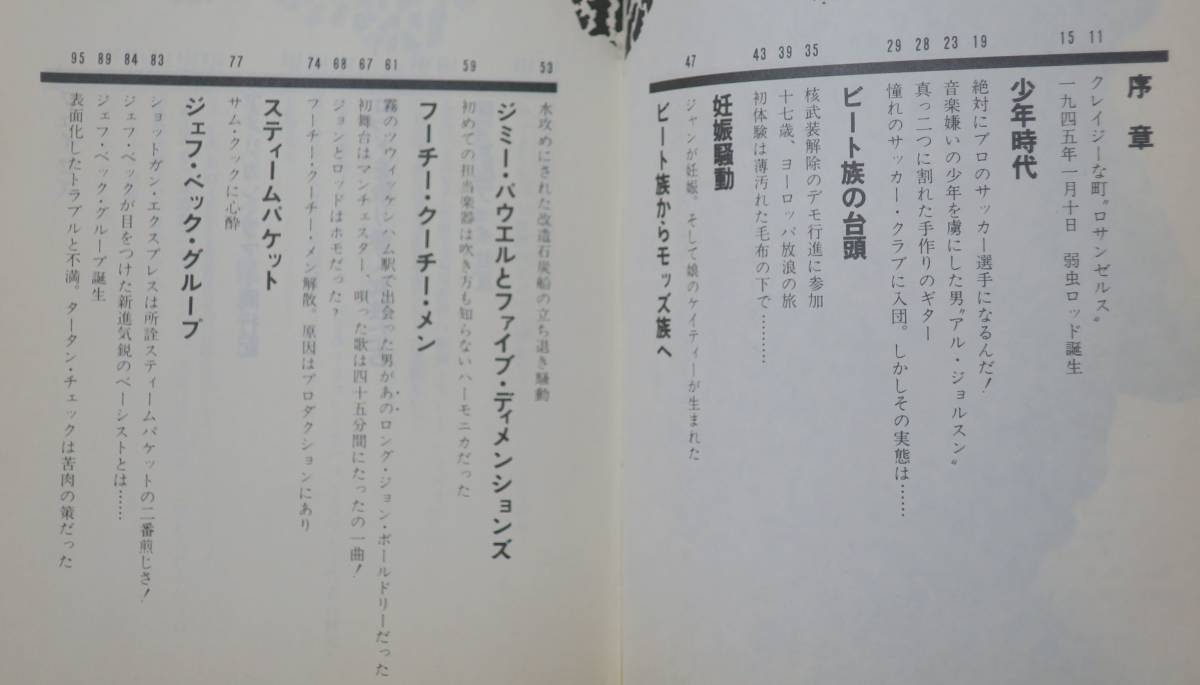 序章
クレイジーな町〝ロサンゼルス〟 11
一九四五年一月十日　弱虫ロッド誕生 15
少年時代
絶対にプロのサッカー選手になるんだ！ 19
音楽嫌いの少年を虜にした男〝アル・ジョルスン〟 23
真っ二つに割れた手作りのギター 28
憧れのサッカー・クラブに入団。しかしその実態は…… 29
ビート族の台頭
核武装解除のデモ行進に参加 35
十七歳、ヨーロッパ放浪の旅 39
初体験は薄汚れた毛布の下で……… 43
妊娠騒動
ジャンが妊娠。そして娘のケイティーが生まれた 47
ビート族からモッズ族へ
水攻めにされた改造石炭船の立ち退き騒動 53
ジミー・パウエルとファイブ・ディメンションズ
初めての担当楽器は吹き方も知らないハーモニカだった 59
フーチー・クーチー・メン
霧のツウィッケンハム駅で出会った男があのロング・ジョン・ボールドリーだった 61
初舞台はマンチェスター、唄った歌は四十五分間にたったの一曲！ 67
ジョンとロッドはホモだった？ 68
フーチー・クーチー・メン解散。原因はプロダクションにあり 74
スティームパケット
サム・クックに心酔 77
ジェフ・ベック・グループ
ショットガン・エクスプレスは所詮スティームパケットの二番煎じさ！ 83
ジェフ・ベックが目をつけた新進気鋭のベーシストとは…… 84
ジェフ・ベック・グループ誕生 89
表面化したトラブルと不満。タータン・チェックは苦肉の策だった 95